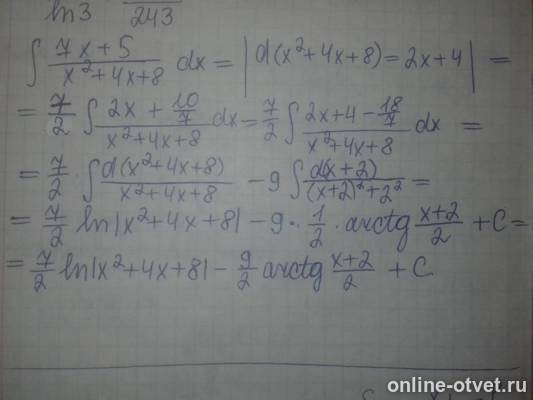 ln3 243
∫ (7x+5)/(x²+4x+8) dx = |d(x²+4x+8)=2x+4| =
= 7/2 ∫ (2x + 10/7)/(x²+4x+8) dx = 7/2 ∫ (2x+4 - 18/7)/(x²+4x+8) dx =
= 7/2 · ∫ d(x²+4x+8)/(x²+4x+8) - 9 ∫ d(x+2)/((x+2)²+2²) =
= 7/2 ln|x²+4x+8| - 9 · 1/2 · arctg (x+2)/2 + C =
= 7/2 ln|x²+4x+8| - 9/2 arctg (x+2)/2 + C
online-otvet.ru